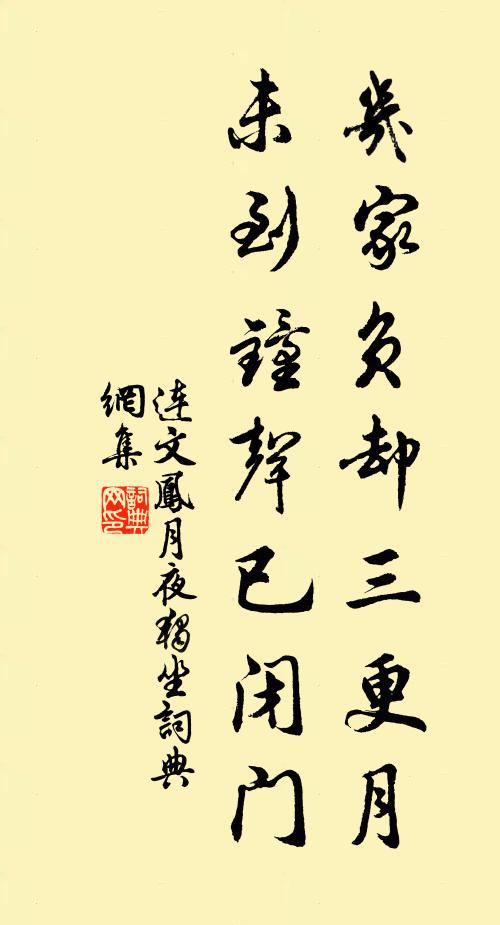 幾家負却三更月
未到鐘聲已閉門
連文鳳月夜獨坐詞典
網集
詞典
网印